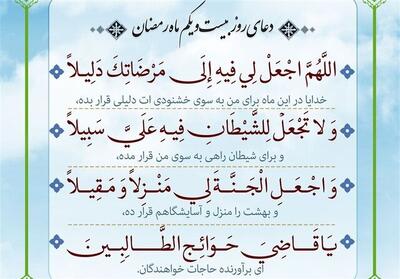 دعای روز بیست و یکم ماه رمضان
اللَّهُمَّ اجْعَلْ لِي فِيهِ إِلَى مَرْضَاتِكَ دَلِيلاً
خدایا در این ماه برای من به سوی خشنودی ات دلیلی قرار بده،
وَ لَا تَجْعَلْ لِلشَّيْطَانِ فِيهِ عَلَيَّ سَبِيلاً
و برای شیطان راهی به سوی من قرار مده،
وَ اجْعَلِ الْجَنَّةَ لِي مَنْزِلاً وَ مَقِيلاً
و بهشت را منزل و آسایشگاهم قرار ده،
يَا قَاضِيَ حَوَائِجِ الطَّالِبِينَ
ای برآورنده حاجات خواهندگان.